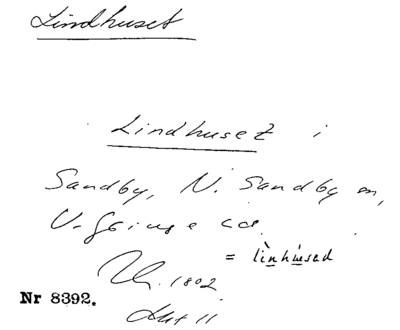 Lindhuset
Lindhuset i
Sandby, N. Sandby sn,
V. Göinge hd.
= lìnhùsəd
1802
Nr 8392.